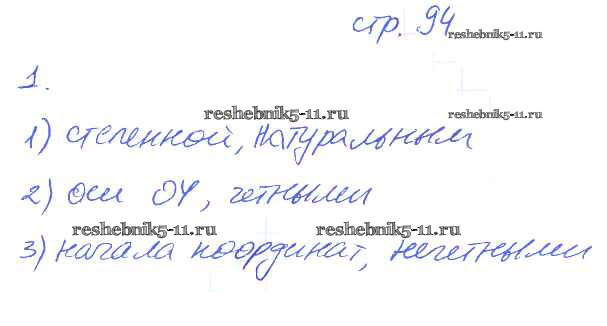 стр. 94
reshebnik5-11.ru
1.
reshebnik5-11.ru
reshebnik5-11.ru
1) степенной, натуральным
2) оси OY, четными
reshebnik5-11.ru
reshebnik5-11.ru
3) начала координат, нечетными